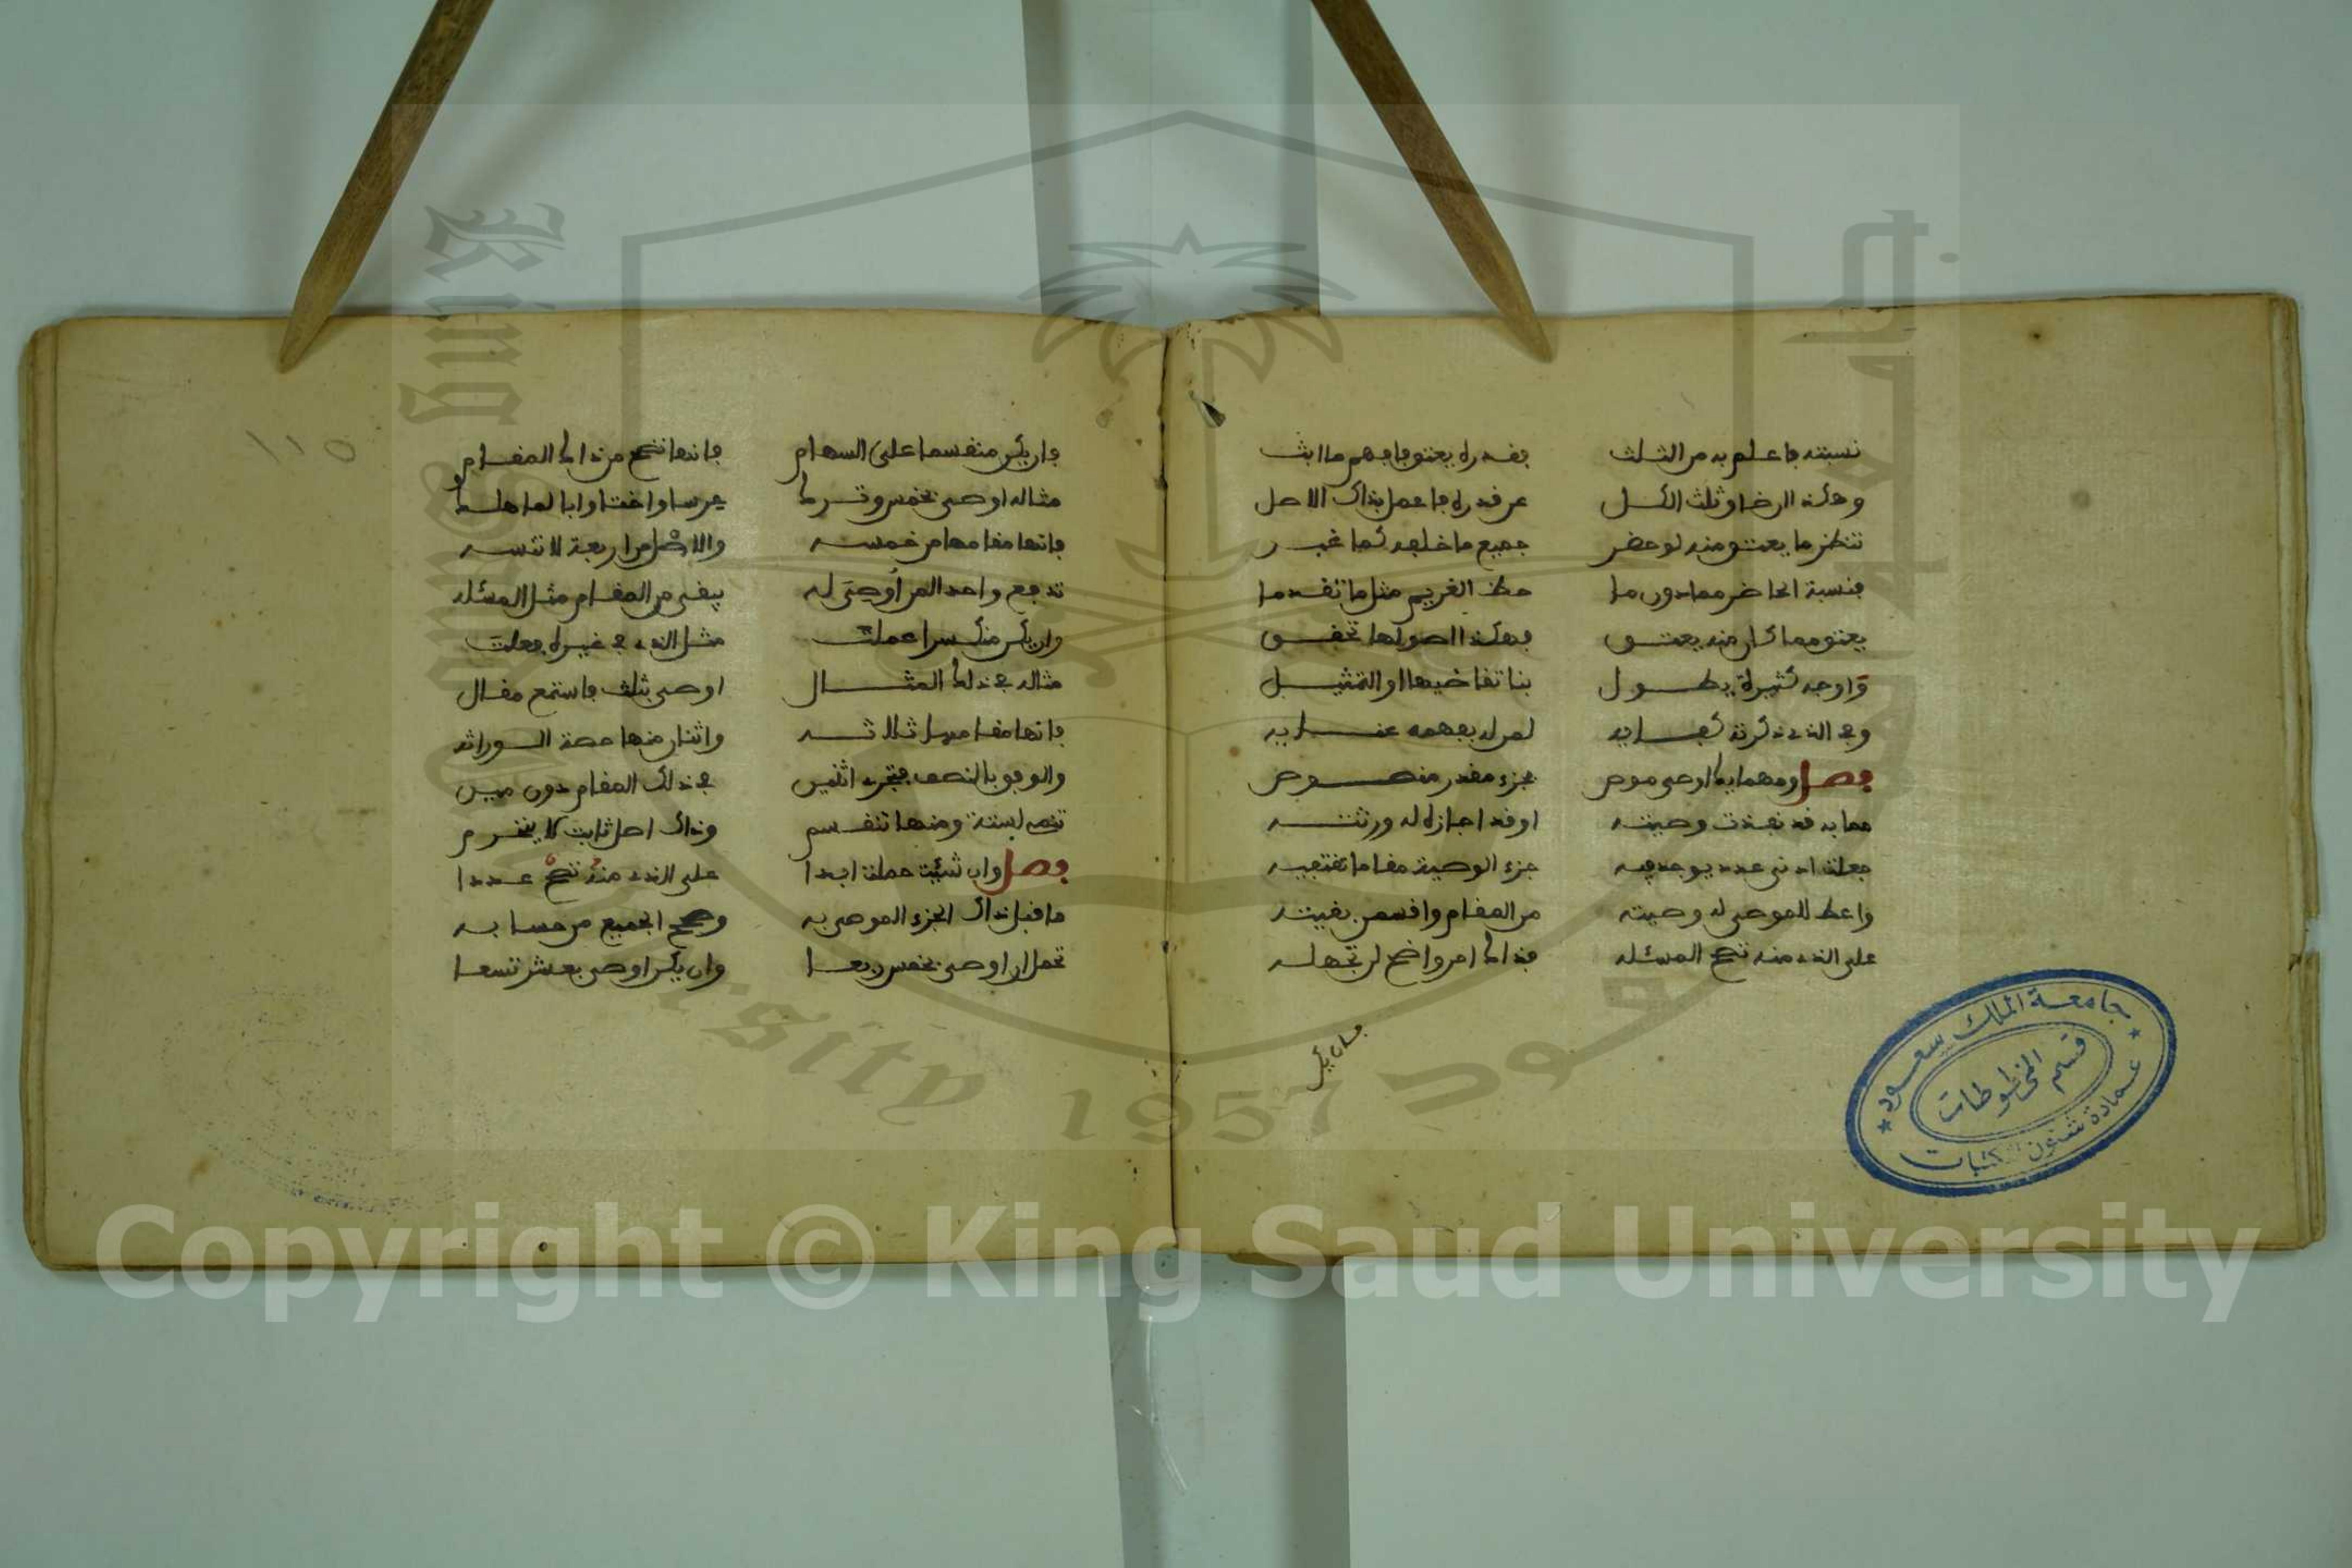 نسبته فاعلم به من الثلث فقدره يعتق فافهم ما ابث
وهكذا ان خاو ثلث الكل عن قدره فاعمل بذاك الاصل
تنظر ما يعتق منه لو حضر جميع ما خلفه كما غبر
فنسبة الحاضر مما دون ما حظ الغريم مثل ما تقدما
يعتق مما كان منه يعتق فهكذا اصولها تحقق
واوجه كثيرة يطول بنا تقاضيها او التمثيل
وفي الذي ذكرته كفايه لمن له بفهمه عنايه
فصل ومهما يك اوصى موص بجزء مقدر منصوص
مما به قد نفذت وصيته او قد اجازه له ورثته
جعلت ادنى عدد يوجد فيه جزء الوصية مقاما تقتفيه
واعط للموصى له وصيته من المقام واقسمن بقيته
على الذي منه تصح المسئله فذاك امر واضح لن تجهله
فان يكن
فان يكن منقسما على السهام فانها تصح من ذاك المقام
مثاله اوصى بخمس وترك عرسا واختا وابا لما هلك
فانها مقامها من خمسه والاصل من اربعة لا تنسه
تدفع واحدا لمن اوصى له يبقى من المقام مثل المسئله
وان يكن منكسرا عملت مثل الذي في غيره فعلت
مثاله في ذلك المثال اوصى بثلث فاستمع مقال
فانها مقامها ثلاثه واثنان منها حصة الوراثه
والوفق بالنصف فتجري اثنين في ذلك المقام دون مين
تصح لستة ومنها تنقسم وذاك اصل ثابت لا ينخرم
فصل وان شئت حملت ابدا على الذي منه تصح عددا
ما قبل ذاك الجزء الموصى به وصح الجميع من حسابه
تحمل ان اوصى بخمس ربعا وان يكن اوصى بعشر تسعا
١١٥
جامعة الملك سعود
قسم المخطوطات
عمادة شئون المكتبات
King Saud University 1957
Copyright © King Saud University